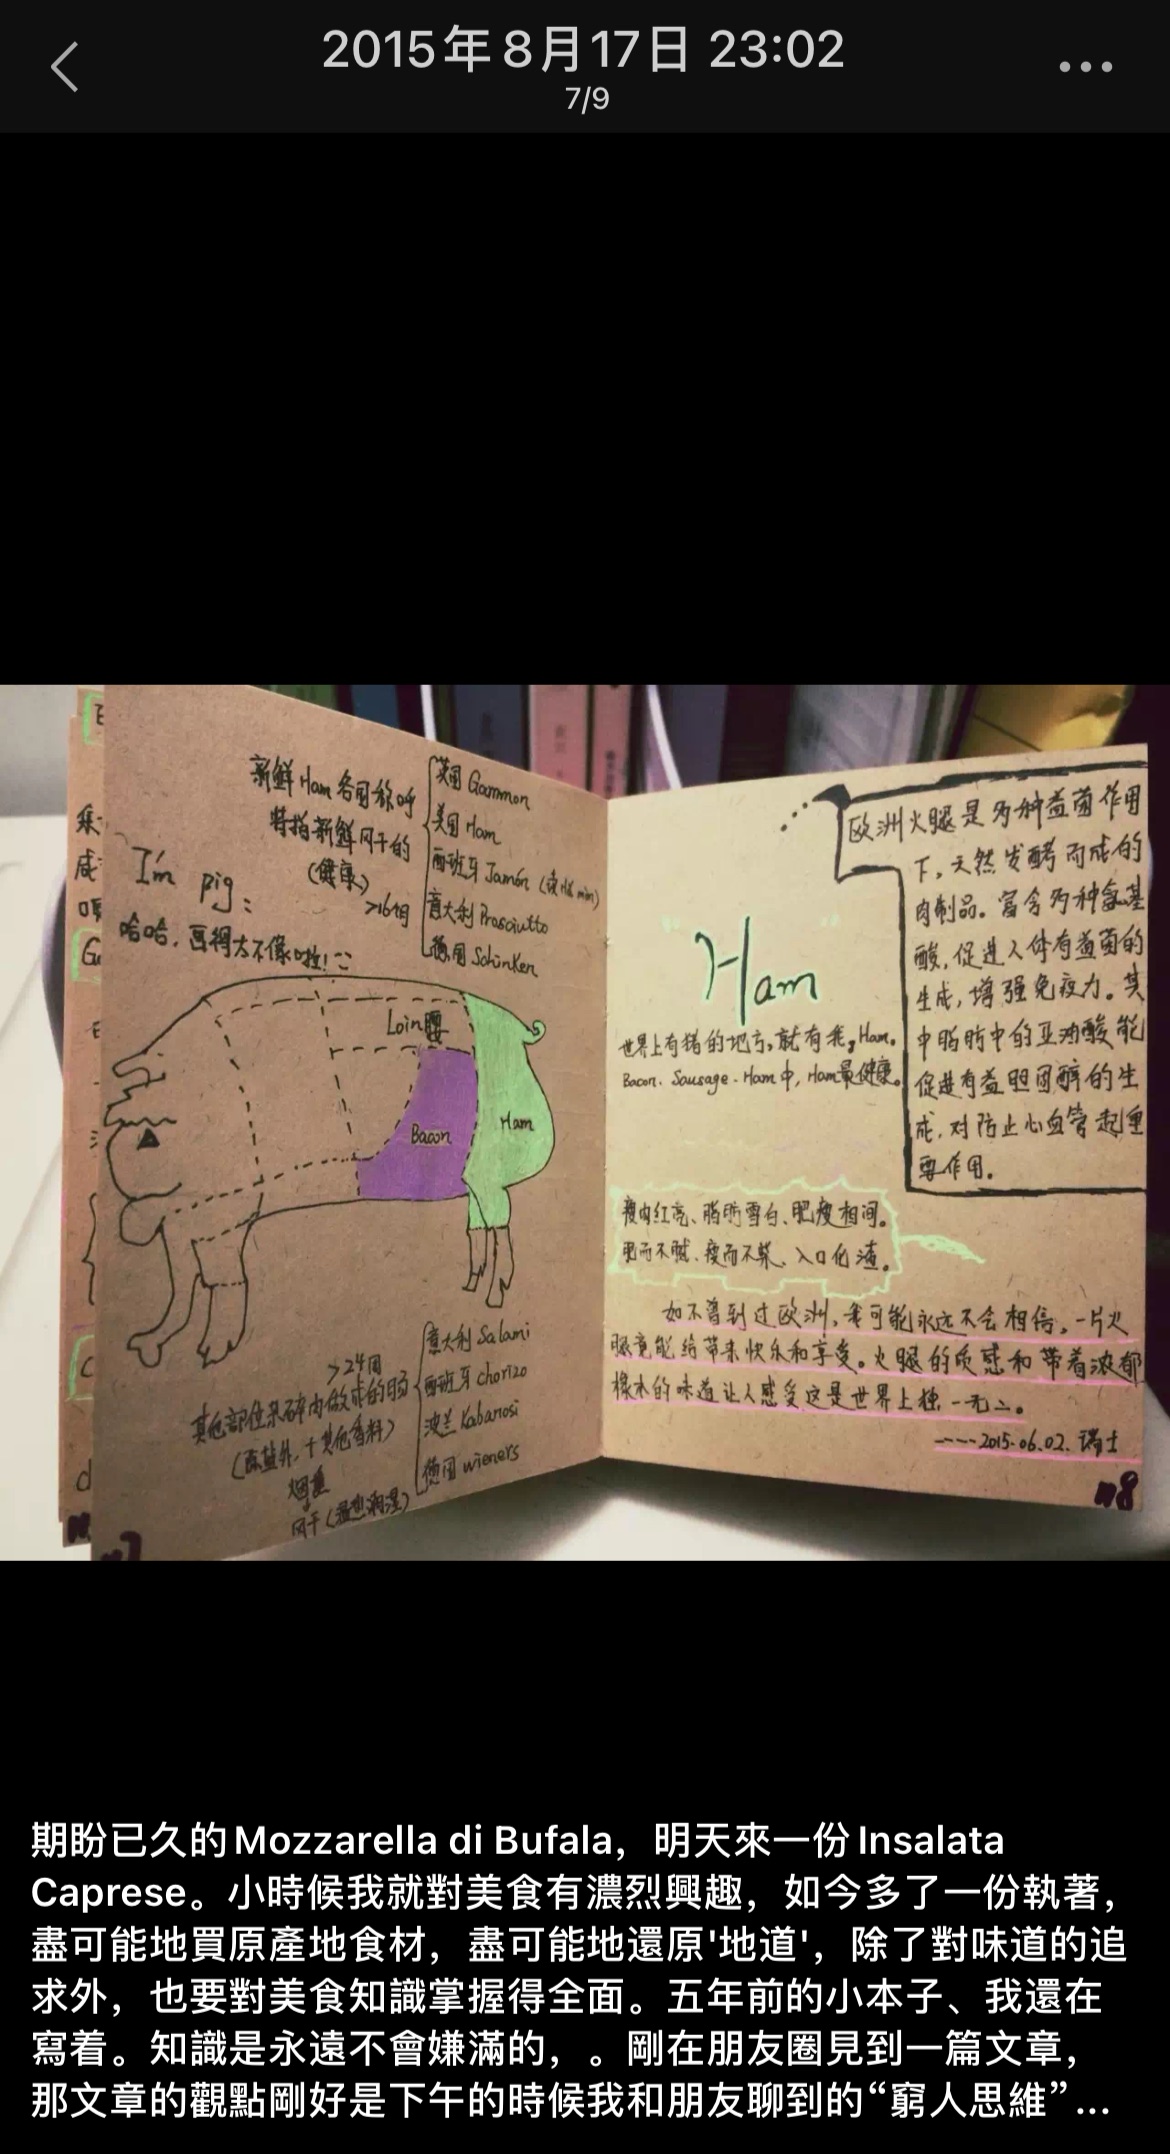 2015年8月17日 23:02
7/9
新鲜Ham各国称呼
特指新鲜风干的
(健康)
>16个月
英国 Gammon
美国 Ham
西班牙 Jamón
意大利 Prosciutto
德国 Schinken
I'm pig:
哈哈,画得太不像啦!
Loin腰
Bacon
Ham
>24周
其他部位杂碎肉做成的肠
(除盐外,十其他香料)
烟熏
风干
意大利 Salami
西班牙 chorizo
波兰 Kabanosi
德国 wieners
n7
欧洲火腿是多种益菌作用
下,天然发酵而成的
肉制品。富含多种氨基
酸,促进人体有益菌的
生成,增强免疫力。其
中脂肪中的亚油酸能
促进有益胆固醇的生
成,对防止心血管起重
要作用。
"Ham"
世界上有猪的地方,就有我,Ham。
Bacon. Sausage. Ham中,Ham最健康。
瘦肉红亮、脂肪雪白、肥瘦相间。
肥而不腻、瘦而不柴、入口化渣。
如不曾到过欧洲,我可能永远不会相信,一片火
腿竟能给带来快乐和享受。火腿的质感和带着浓郁
橡木的味道让人感受这是世界上独一无二。
----2015.06.02. 瑞士
n8
期盼已久的Mozzarella di Bufala，明天來一份Insalata
Caprese。小時候我就對美食有濃烈興趣，如今多了一份執著，
盡可能地買原產地食材，盡可能地還原'地道'，除了對味道的追
求外，也要對美食知識掌握得全面。五年前的小本子、我還在
寫着。知識是永遠不會嫌滿的，。剛在朋友圈見到一篇文章，
那文章的觀點剛好是下午的時候我和朋友聊到的“窮人思維”...